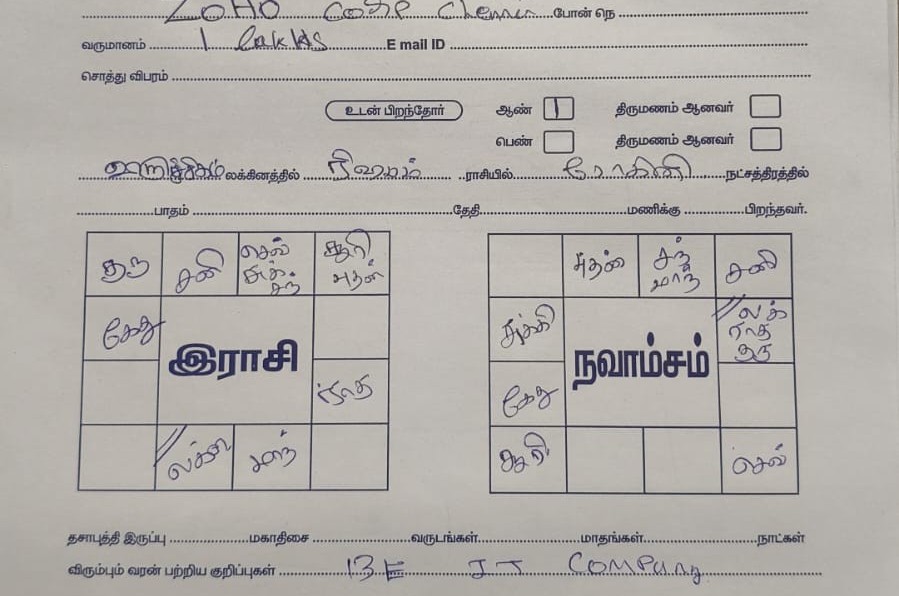 ZOHO Corp Chennai போன் நெ
வருமானம் 1 lakhs E mail ID
சொத்து விபரம்
உடன் பிறந்தோர் ஆண் 1 திருமணம் ஆனவர்
பெண் திருமணம் ஆனவர்
லக்கினத்தில் ரிஷபம் ராசியில் ரோகிணி நட்சத்திரத்தில்
பாதம் தேதி மணிக்கு பிறந்தவர்.
குரு சனி செவ் சுக் சந் சூரி புதன் புதன் சந் மாந் சனி
கேது சுக்கி லக் ராகு குரு
இராசி நவாம்சம்
ராகு கேது
லக்கி மாந் சூரி செவ்
தசாபுத்தி இருப்பு மகாதிசை வருடங்கள் மாதங்கள் நாட்கள்
விரும்பும் வரன் பற்றிய குறிப்புகள் BE IT Company